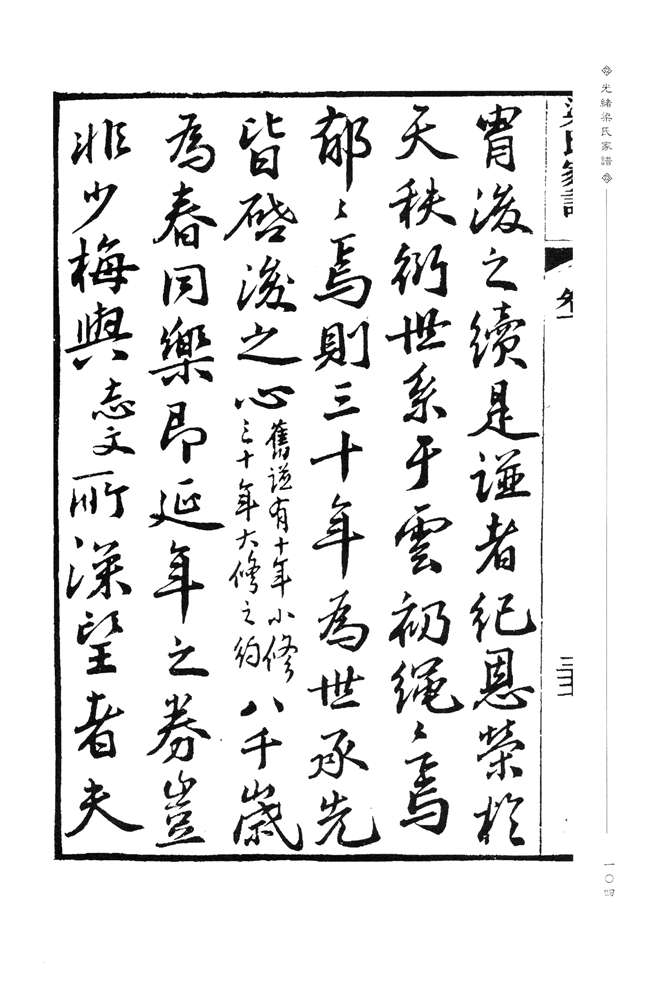 光緒梁氏家譜
一〇四
梁氏家譜
胄後之續是譜者紀恩榮於
天秩衍世系于雲礽繩〻焉
郁〻焉則三十年為世承先
皆啓後之心
舊譜有十年小修
三十年大修之約
八千歲
為春同樂即延年之券豈
非少梅與志文所深望者夫